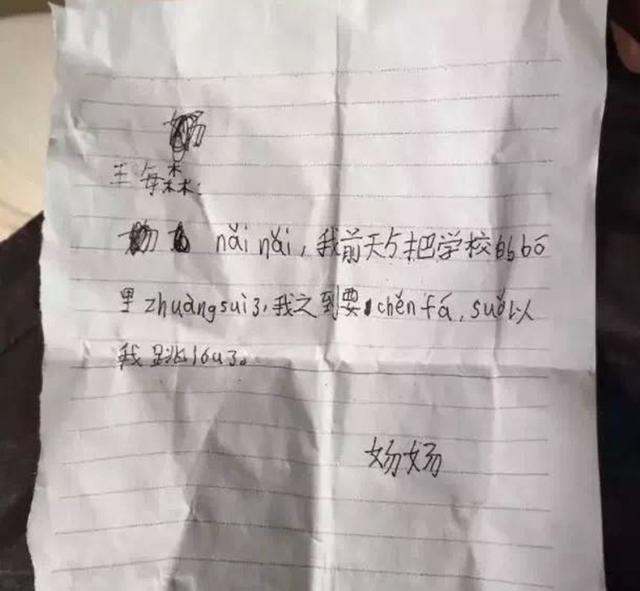 王每森:
nǎi nǎi, 我前天把学校的bō
里zhuàng sui了,我之到要chěn fá, suǒ以
我跳lóu了。